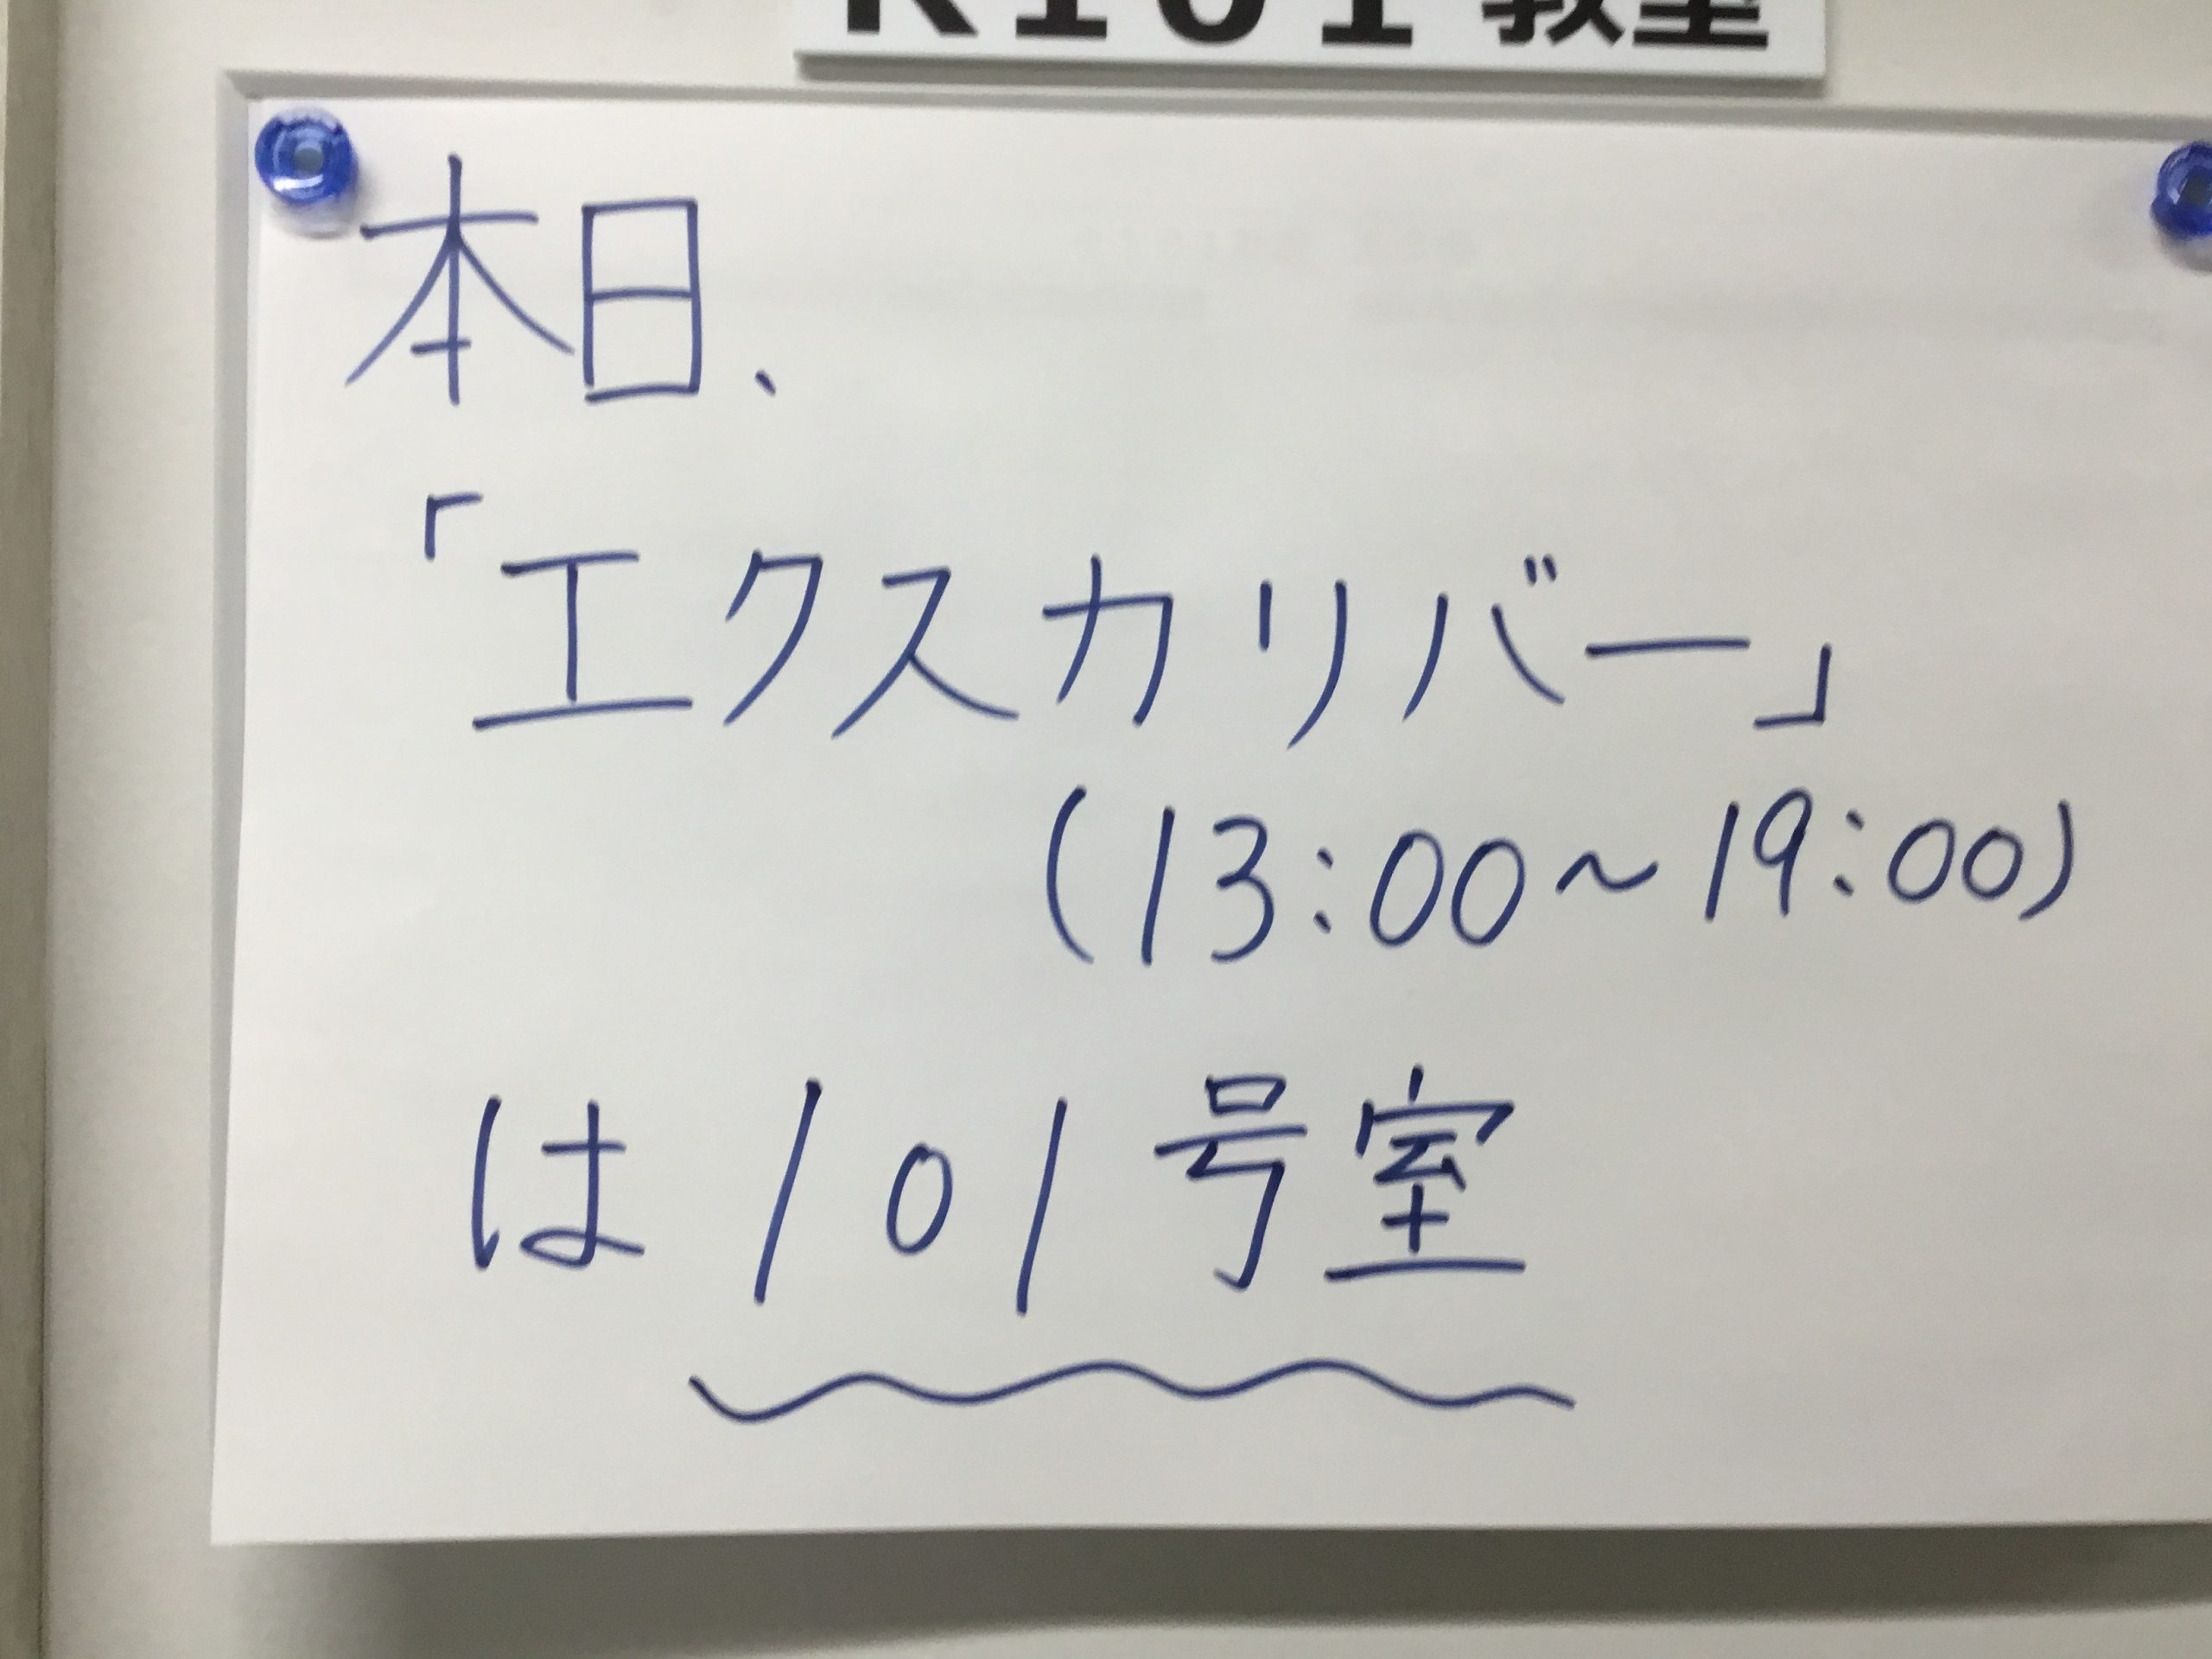 K101教室
本日、
「エクスカリバー」
(13:00~19:00)
は101号室